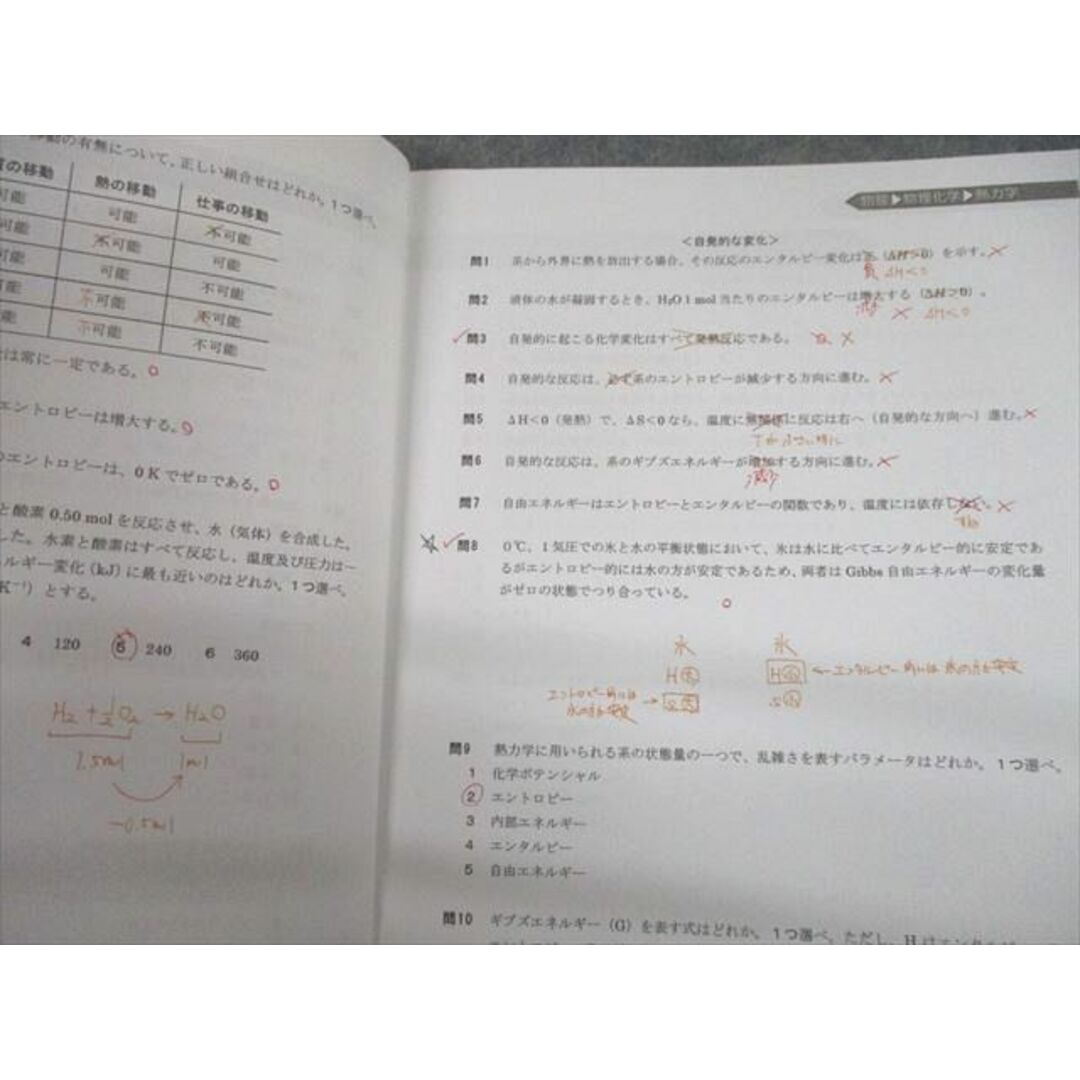 の有無について、正しい組合せはどれか。1つ選べ。
の移動 熱の移動 仕事の移動
可能 可能 不可能
可能 不可能 可能
可能 不可能
不可能 不可能
能 不可能 不可能
は常に一定である。○
エントロピーは増大する。○
のエントロピーは、0 Kでゼロである。○
と酸素 0.50 mol を反応させ、水（気体）を合成した。
した。水素と酸素はすべて反応し、温度及び圧力は一
ルギー変化（kJ）に最も近いのはどれか。1つ選べ。
K⁻¹）とする。
4 120 5 240 6 360
H₂ + ½O₂ → H₂O
1.5mol 1mol
-0.5mol
物理▶物理化学▶熱力学
＜自発的な変化＞
問1 系から外界に熱を放出する場合、その反応のエンタルピー変化は正（ΔH>0）を示す。×
負 ΔH<0
問2 液体の水が凝固するとき、H₂O 1 mol 当たりのエンタルピーは増大する（ΔH>0）。
減少 × ΔH<0
✓問3 自発的に起こる化学変化はすべて発熱反応である。 ×
問4 自発的な反応は、必ず系のエントロピーが減少する方向に進む。×
問5 ΔH<0（発熱）で、ΔS<0なら、温度に無関係に反応は右へ（自発的な方向へ）進む。×
Tが小さい時に
問6 自発的な反応は、系のギブズエネルギーが増加する方向に進む。×
減少
問7 自由エネルギーはエントロピーとエンタルピーの関数であり、温度には依存しない。×
する
☆✓問8 0℃、1気圧での氷と水の平衡状態において、氷は水に比べてエンタルピー的に安定であ
るがエントロピー的には水の方が安定であるため、両者は Gibbs 自由エネルギーの変化量
がゼロの状態でつり合っている。 ○
水 氷
H高 H低 ←エンタルピー的には氷の方が安定
エントロピー的には → S高 S低
水の方が安定
問9 熱力学に用いられる系の状態量の一つで、乱雑さを表すパラメータはどれか。1つ選べ。
1 化学ポテンシャル
2 エントロピー
3 内部エネルギー
4 エンタルピー
5 自由エネルギー
問10 ギブズエネルギー（G）を表す式はどれか。1つ選べ。ただし、Hはエンタル